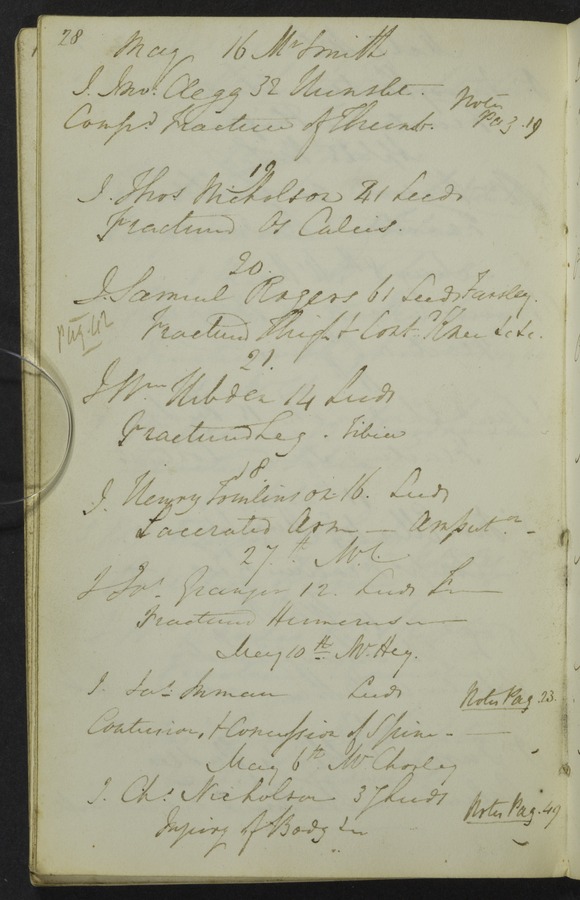 28
May 16 Mr Smith
I. Jno. Clegg 32 Hunslet.
Compd Fracture of Thumb. Notes Pag. 19
19
I. Thos Nicholson 41 Leeds
Fractured Os Calcis.
20.
I. Samuel Rogers 61 Leeds Farsley.
Pag. 42
Fractured Thigh & Cont. Knee &c &c.
21.
I Wm 14 Leeds
Fractured Leg. Tibia
18.
I. Henry Tomlinson 16. Leeds
Lacerated Arm — Amputn —
27th
I Jos. Granger 12. Leeds
Fractured Humerus
May 10th Mr Hey.
I. Jas. Inman Leeds Notes Pag. 23.
Contusion, & Concussion of Spine.
May 6th Mr Chorley
I. Chs. Nicholson 37 Leeds Notes Pag. 49
Injury of Body